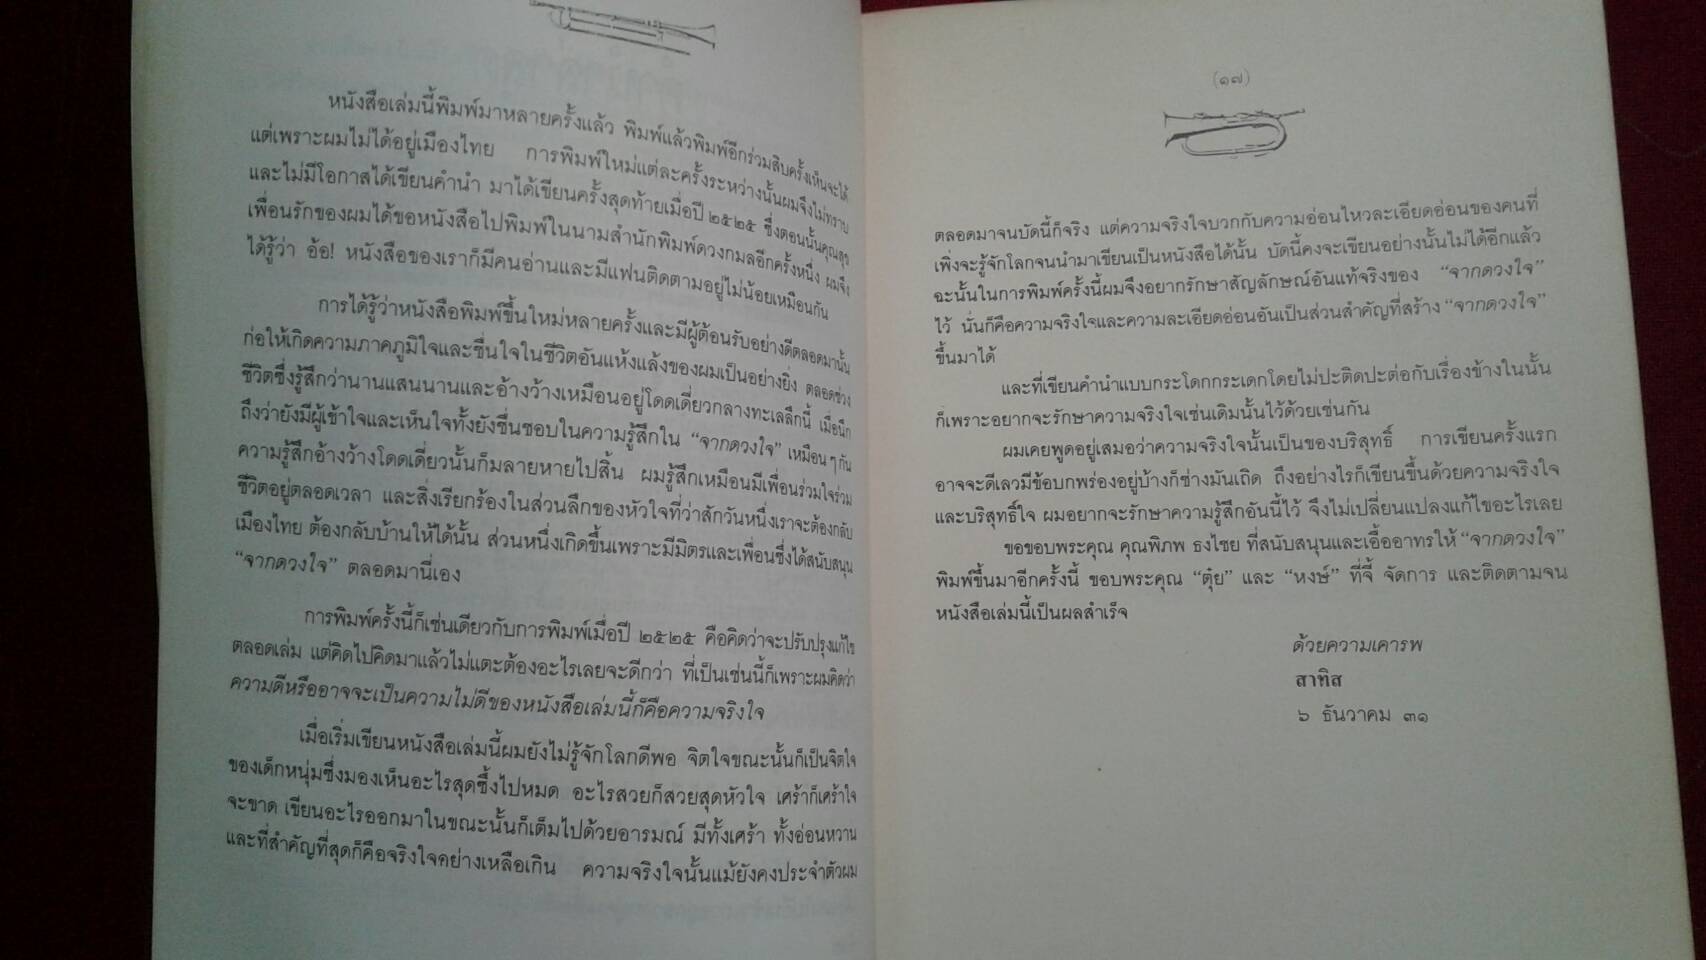 หนังสือเล่มนี้พิมพ์มาหลายครั้งแล้ว พิมพ์แล้วพิมพ์อีกร่วมสิบครั้งเห็นจะได้
แต่เพราะผมไม่ได้อยู่เมืองไทย การพิมพ์ใหม่แต่ละครั้งระหว่างนั้นผมจึงไม่ทราบ
และไม่มีโอกาสได้เขียนคำนำ มาได้เขียนครั้งสุดท้ายเมื่อปี ๒๕๒๕ ซึ่งตอนนั้นคุณสุข
เพื่อนรักของผมได้ขอหนังสือไปพิมพ์ในนามสำนักพิมพ์ดวงกมลอีกครั้งหนึ่ง ผมจึง
ได้รู้ว่า อ้อ! หนังสือของเราก็มีคนอ่านและมีแฟนติดตามอยู่ไม่น้อยเหมือนกัน
การได้รู้ว่าหนังสือพิมพ์ขึ้นใหม่หลายครั้งและมีผู้ต้อนรับอย่างดีตลอดมานั้น
ก่อให้เกิดความภาคภูมิใจและชื่นใจในชีวิตอันแห้งแล้งของผมเป็นอย่างยิ่ง ตลอดช่วง
ชีวิตซึ่งรู้สึกว่านานแสนนานและอ้างว้างเหมือนอยู่โดดเดี่ยวกลางทะเลลึกนี้ เมื่อนึก
ถึงว่ายังมีผู้เข้าใจและเห็นใจทั้งยังชื่นชอบในความรู้สึกใน “จากดวงใจ” เหมือนๆกัน
ความรู้สึกอ้างว้างโดดเดี่ยวนั้นก็มลายหายไปสิ้น ผมรู้สึกเหมือนมีเพื่อนร่วมใจร่วม
ชีวิตอยู่ตลอดเวลา และสิ่งเรียกร้องในส่วนลึกของหัวใจที่ว่าสักวันหนึ่งเราจะต้องกลับ
เมืองไทย ต้องกลับบ้านให้ได้นั้น ส่วนหนึ่งเกิดขึ้นเพราะมีมิตรและเพื่อนซึ่งได้สนับสนุน
“จากดวงใจ” ตลอดมานี่เอง
การพิมพ์ครั้งนี้ก็เช่นเดียวกับการพิมพ์เมื่อปี ๒๕๒๕ คือคิดว่าจะปรับปรุงแก้ไข
ตลอดเล่ม แต่คิดไปคิดมาแล้วไม่แตะต้องอะไรเลยจะดีกว่า ที่เป็นเช่นนี้ก็เพราะผมคิดว่า
ความดีหรืออาจจะเป็นความไม่ดีของหนังสือเล่มนี้ก็คือความจริงใจ
เมื่อเริ่มเขียนหนังสือเล่มนี้ผมยังไม่รู้จักโลกดีพอ จิตใจขณะนั้นก็เป็นจิตใจ
ของเด็กหนุ่มซึ่งมองเห็นอะไรสุดซึ้งไปหมด อะไรสวยก็สวยสุดหัวใจ เศร้าก็เศร้าใจ
จะขาด เขียนอะไรออกมาในขณะนั้นก็เต็มไปด้วยอารมณ์ มีทั้งเศร้า ทั้งอ่อนหวาน
และที่สำคัญที่สุดก็คือจริงใจอย่างเหลือเกิน ความจริงใจนั้นแม้ยังคงประจำตัวผม
(๑๗)
ตลอดมาจนบัดนี้ก็จริง แต่ความจริงใจบวกกับความอ่อนไหวละเอียดอ่อนของคนที่
เพิ่งจะรู้จักโลกจนนำมาเขียนเป็นหนังสือได้นั้น บัดนี้คงจะเขียนอย่างนั้นไม่ได้อีกแล้ว
ฉะนั้นในการพิมพ์ครั้งนี้ผมจึงอยากรักษาสัญลักษณ์อันแท้จริงของ “จากดวงใจ”
ไว้ นั่นก็คือความจริงใจและความละเอียดอ่อนอันเป็นส่วนสำคัญที่สร้าง “จากดวงใจ”
ขึ้นมาได้
และที่เขียนคำนำแบบกระโดกกระเดกโดยไม่ปะติดปะต่อกับเรื่องข้างในนั้น
ก็เพราะอยากจะรักษาความจริงใจเช่นเดิมนั้นไว้ด้วยเช่นกัน
ผมเคยพูดอยู่เสมอว่าความจริงใจนั้นเป็นของบริสุทธิ์ การเขียนครั้งแรก
อาจจะดีเลวมีข้อบกพร่องอยู่บ้างก็ช่างมันเถิด ถึงอย่างไรก็เขียนขึ้นด้วยความจริงใจ
และบริสุทธิ์ใจ ผมอยากจะรักษาความรู้สึกอันนี้ไว้ จึงไม่เปลี่ยนแปลงแก้ไขอะไรเลย
ขอขอบพระคุณ คุณพิภพ ธงไชย ที่สนับสนุนและเอื้ออาทรให้ “จากดวงใจ”
พิมพ์ขึ้นมาอีกครั้งนี้ ขอบพระคุณ “ตุ๋ย” และ “หงษ์” ที่จี้ จัดการ และติดตามจน
หนังสือเล่มนี้เป็นผลสำเร็จ
ด้วยความเคารพ
สาทิส
๖ ธันวาคม ๓๑